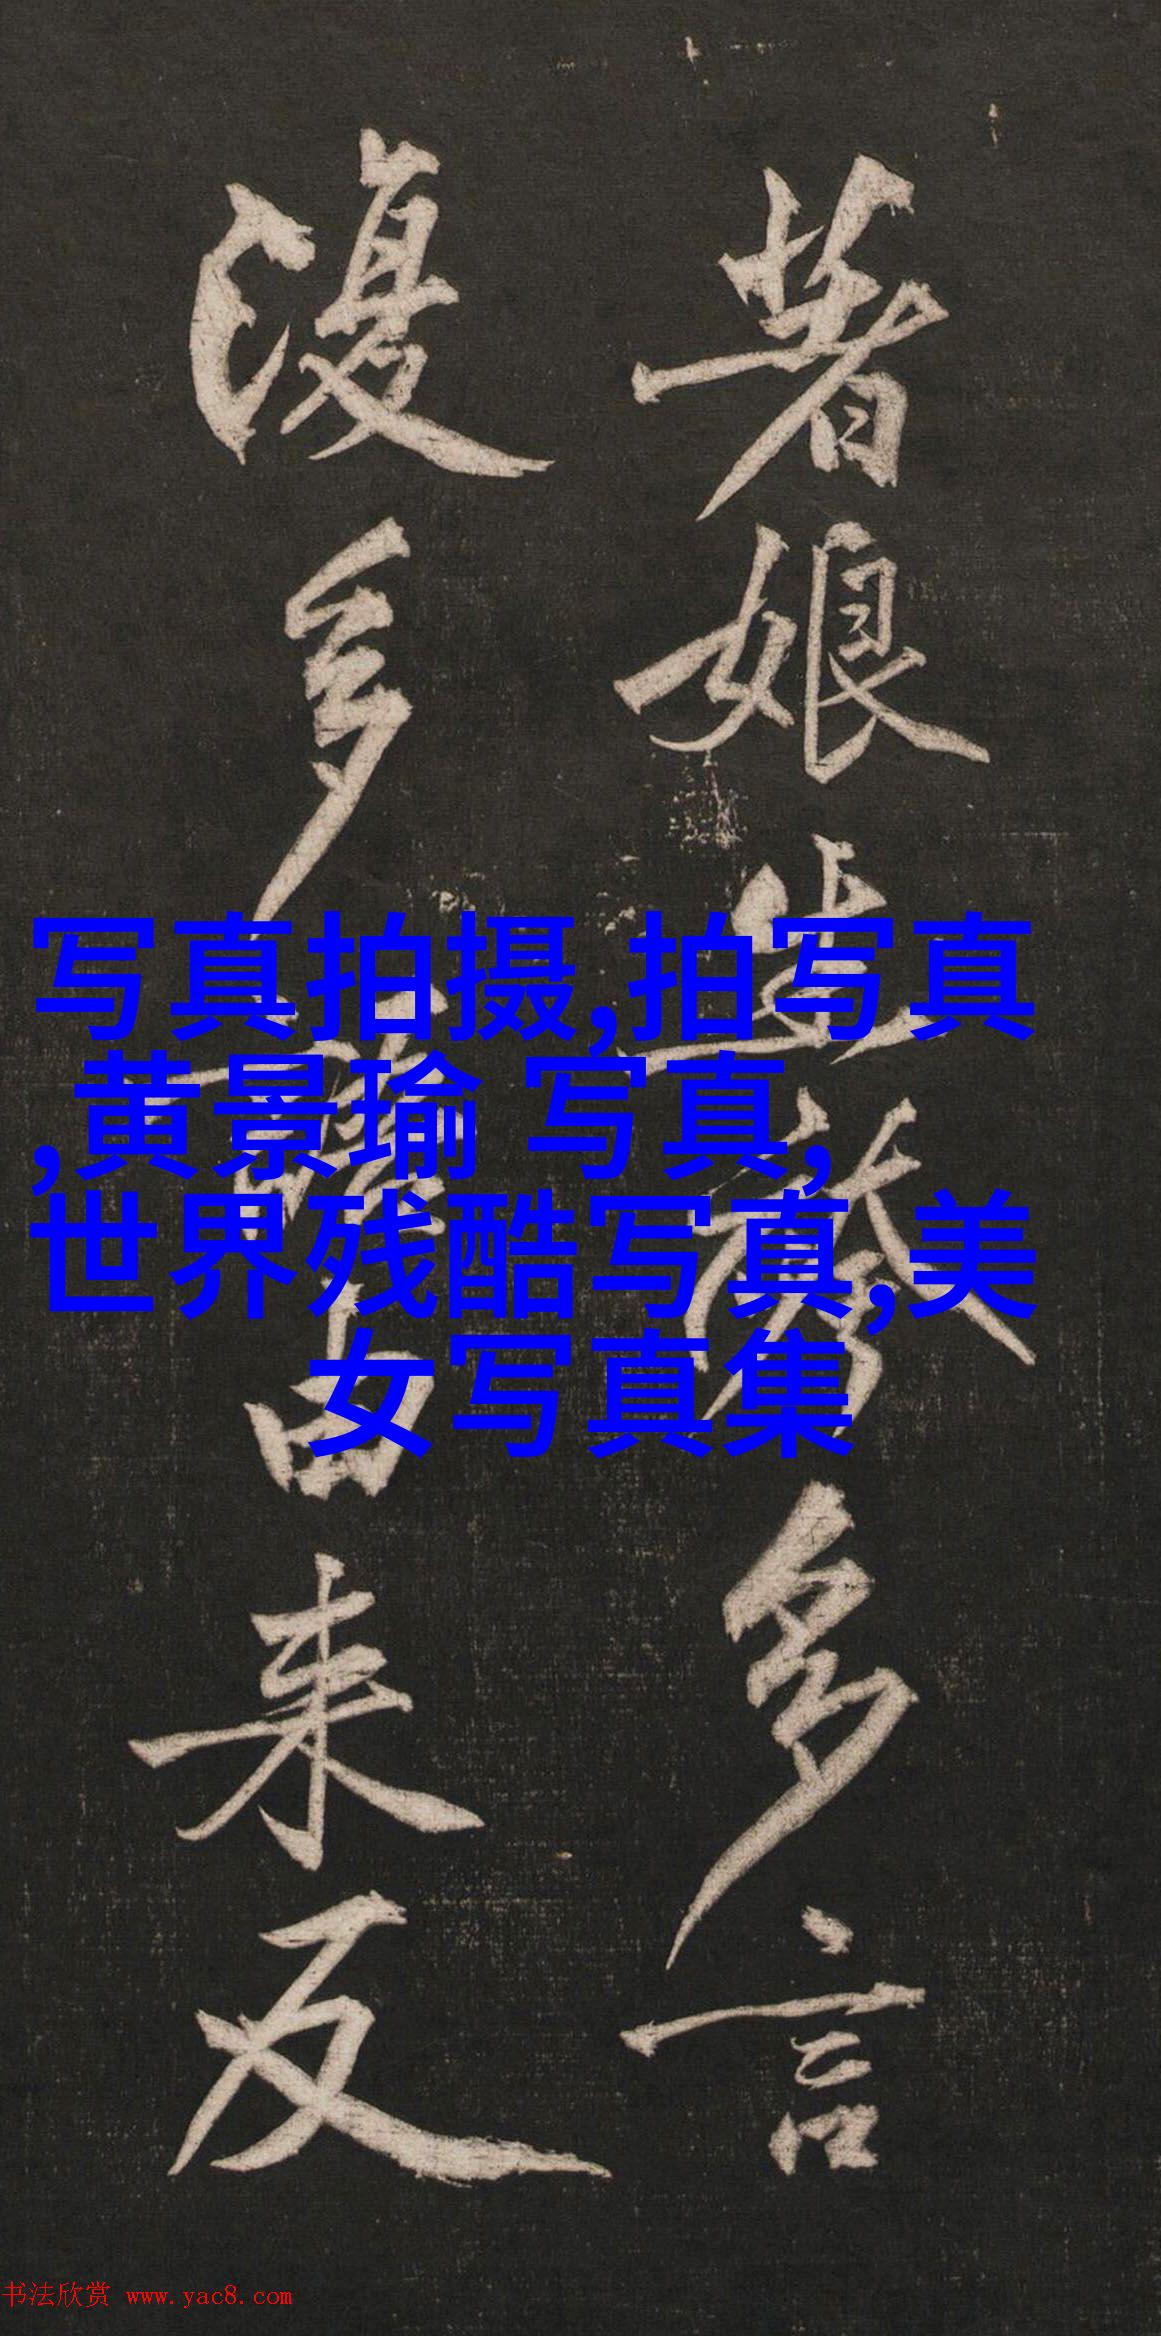 娘多言
復多由来反
写真拍摄,拍写真
,黄景瑜 写真,
世界残酷写真,美
女写真集
书法欣赏 www.yac8.com